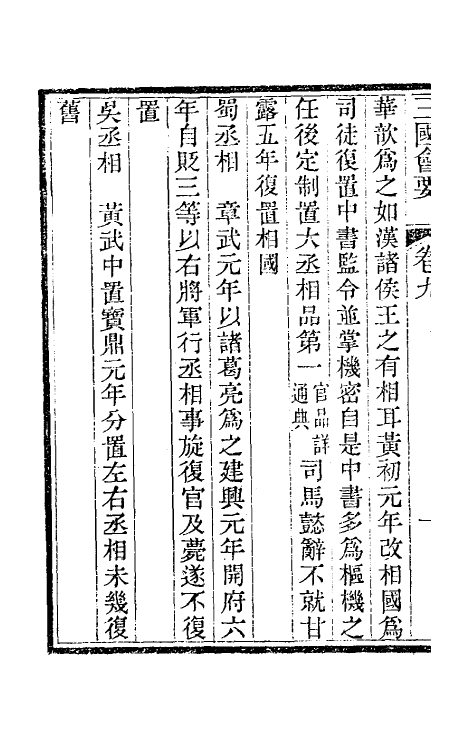 三國會要 卷九 一
華歆爲之如漢諸侯王之有相耳黃初元年改相國爲
司徒復置中書監令並掌機密自是中書多爲樞機之
任後定制置大丞相品第一官品詳通典司馬懿辭不就甘
露五年復置相國
蜀丞相 章武元年以諸葛亮爲之建興元年開府六
年自貶三等以右將軍行丞相事旋復官及薨遂不復
置
吳丞相 黃武中置寶鼎元年分置左右丞相未幾復
舊